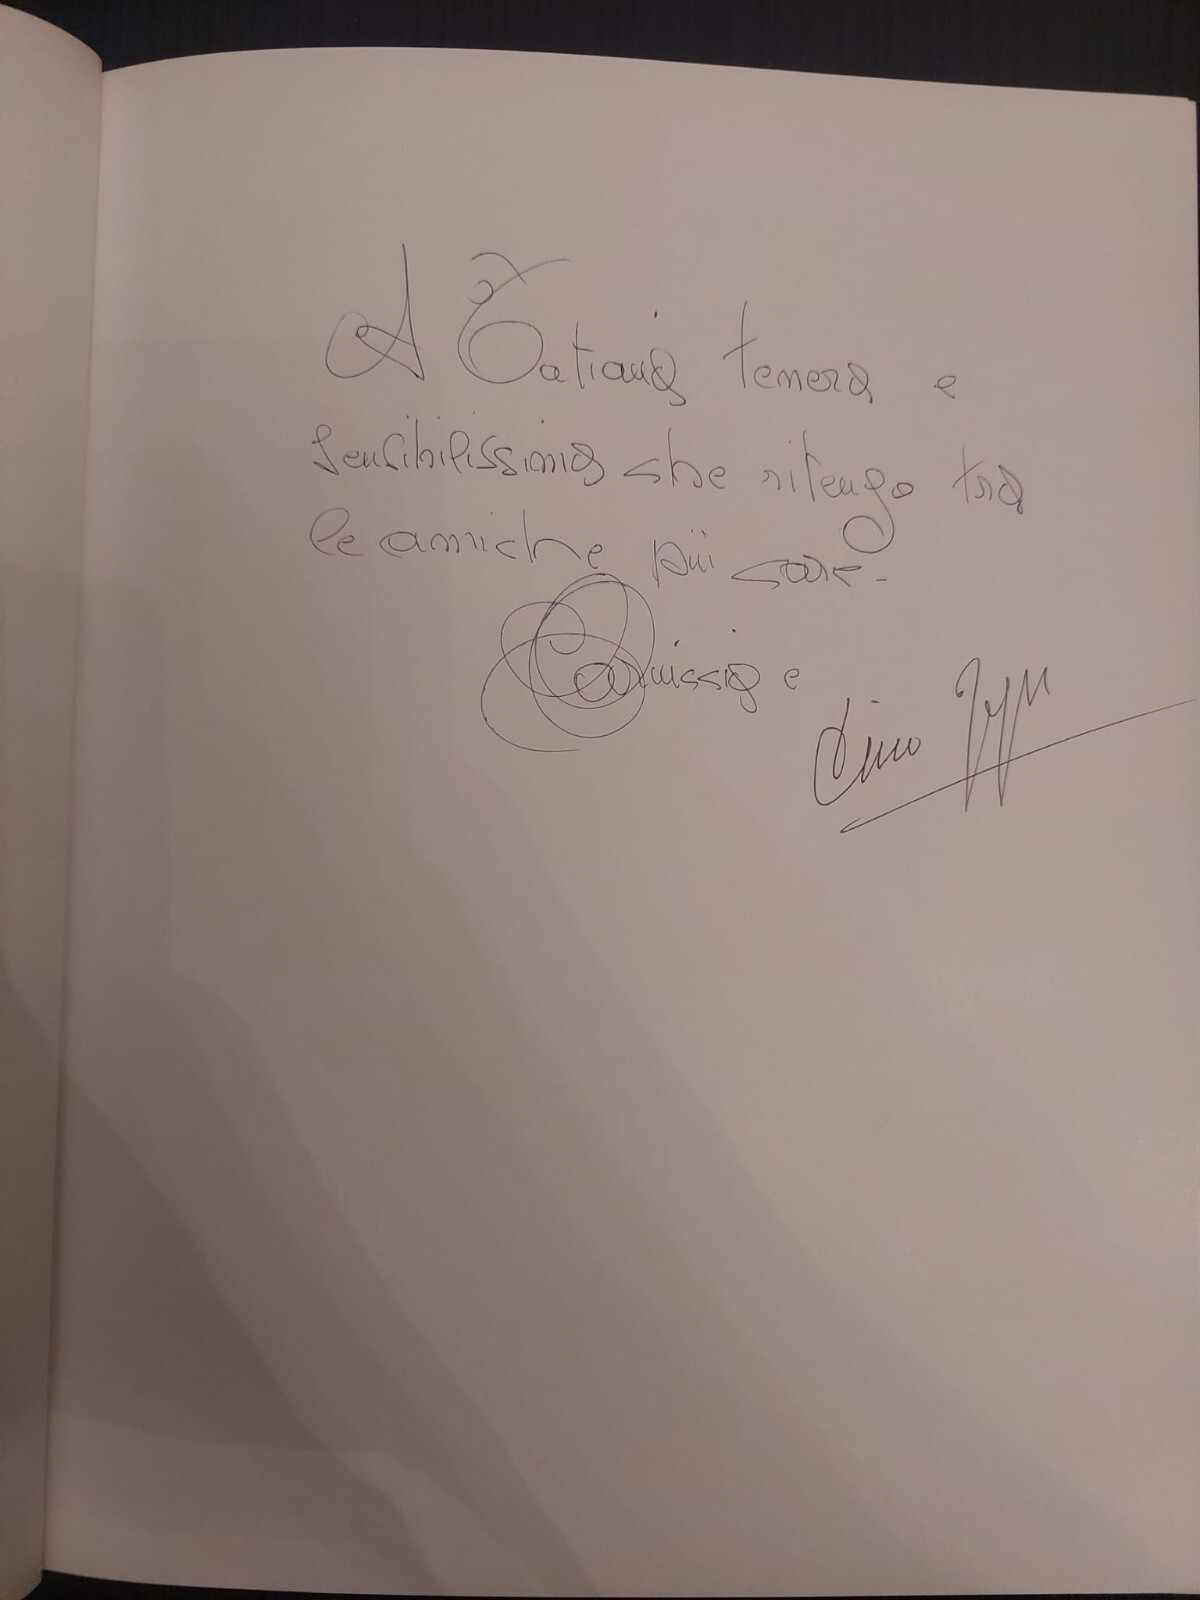 A Tatiana tenera e
sensibilissima che ritengo tra
le amiche più care.
e
Dino